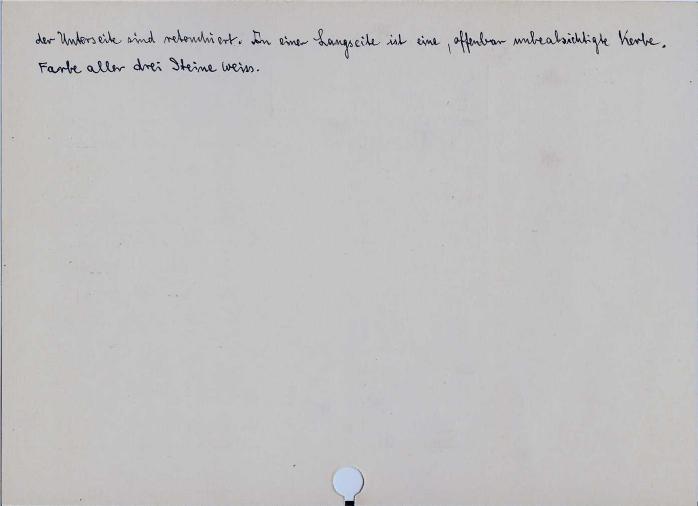 der Unterseite sind retouchiert. An einer Langseite ist eine, offenbar unbeabsichtigte Kerbe.
Farbe aller drei Steine weiss.